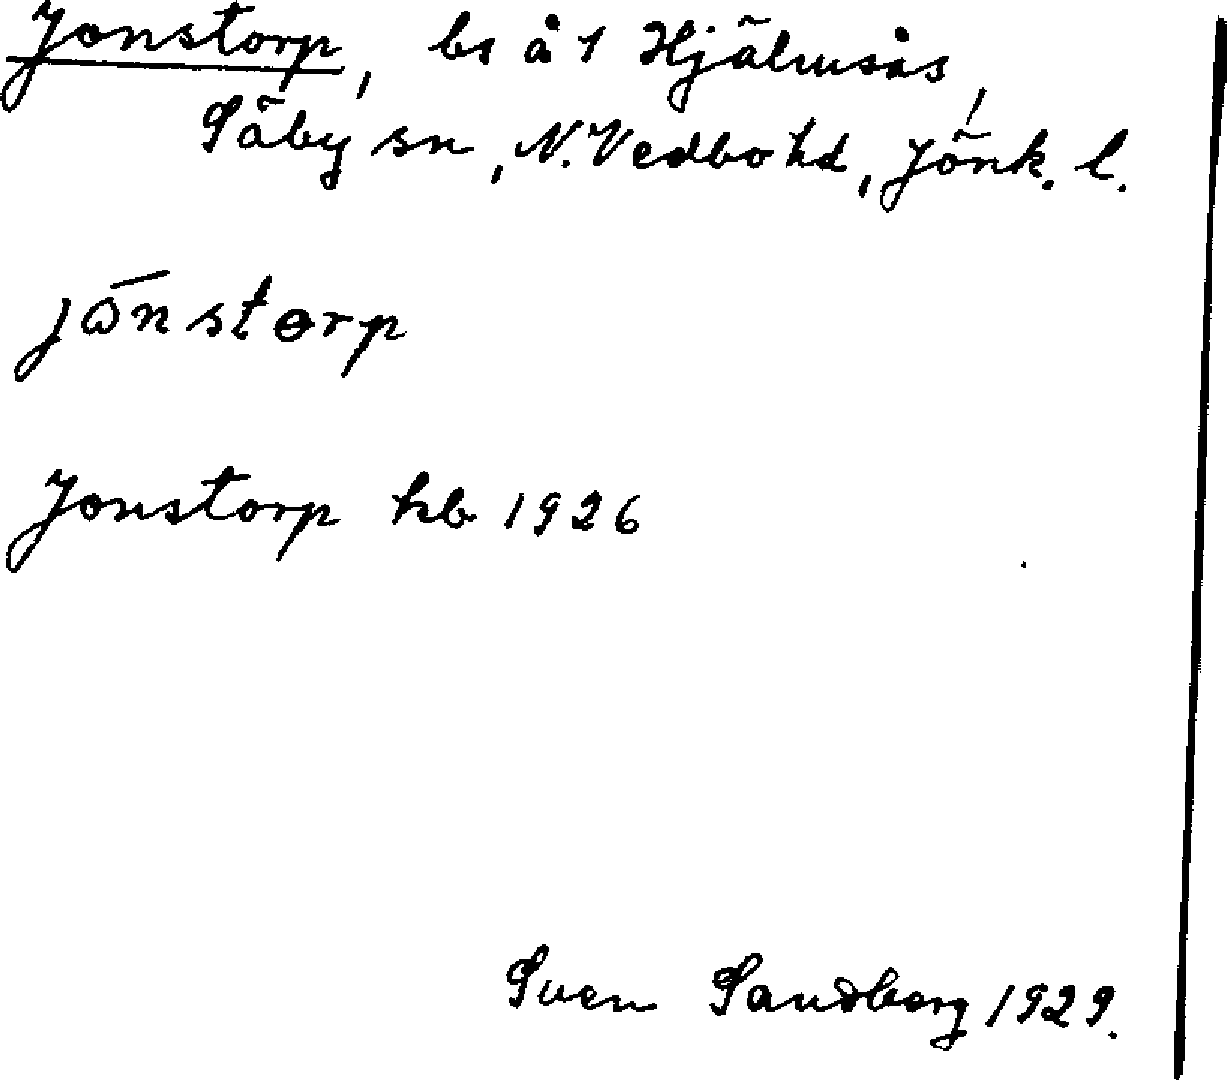 Jonstorp, bs å 1 Hjälmsås,
Säby sn, N. Vedbo hd, Jönk. l.
jónstorp
Jonstorp hb 1926
Sven Sandberg 1929.